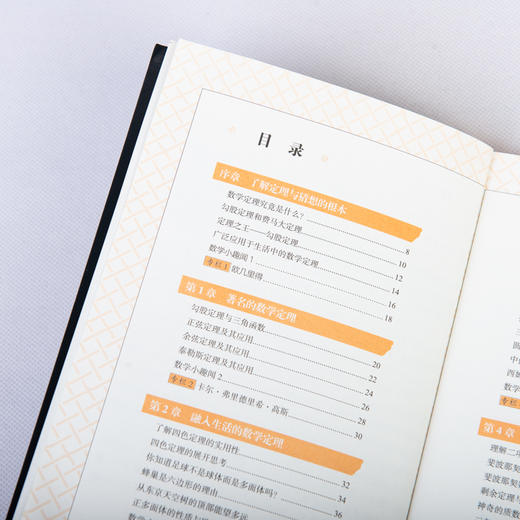 目 录
序章 了解定理与猜想的根本
数学定理究竟是什么? 8
勾股定理和费马大定理 10
定理之王——勾股定理 12
广泛应用于生活中的数学定理 14
数学小趣闻 1 16
专栏 1 欧几里得 18
第 1 章 著名的数学定理
勾股定理与三角函数 20
正弦定理及其应用 22
余弦定理及其应用 24
泰勒斯定理及其应用 26
数学小趣闻 2 28
专栏 2 卡尔·弗里德里希·高斯 30
第 2 章 融入生活的数学定理
了解四色定理的实用性 32
四色定理的展开思考 34
你知道足球不是球体而是多面体吗? 36
蜂巢是六边形的理由 38
从东京天空树的顶部能望多远
正多面体的性质
数学小
圆
中
西
专栏
第 4 章
理解二项
斐波那契
斐波那契
剩余定理
神奇的质数